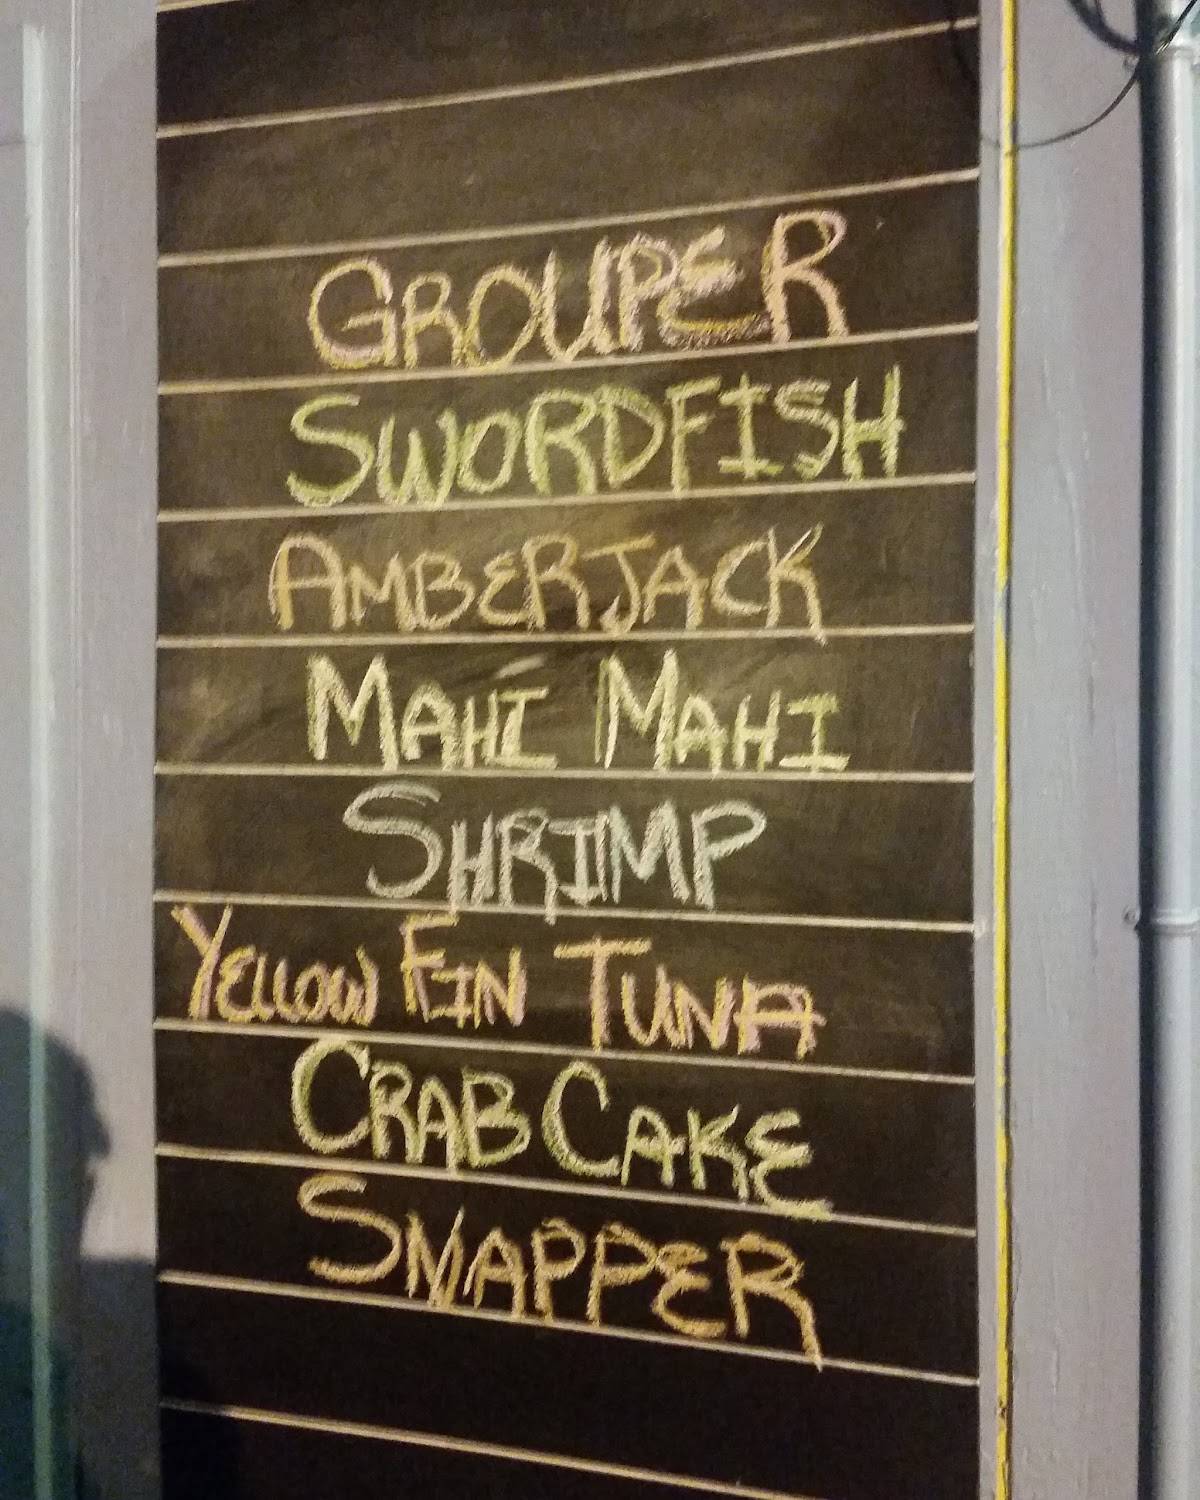 GROUPER
SWORDFISH
AMBERJACK
MAHI MAHI
SHRIMP
YELLOW FIN TUNA
CRAB CAKE
SNAPPER